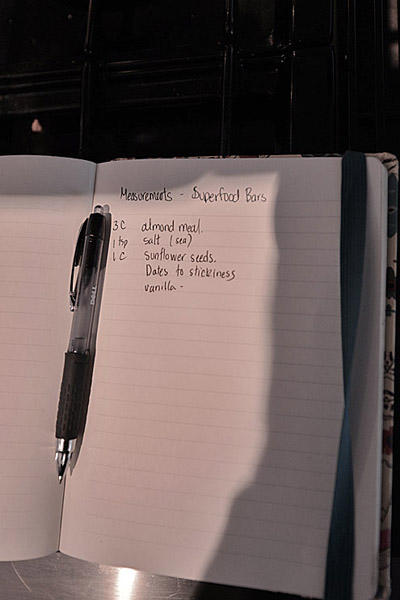 Measurements - Superfood Bars
3 C almond meal.
1 tsp salt (sea)
1 C sunflower seeds.
Dates to stickiness
vanilla -